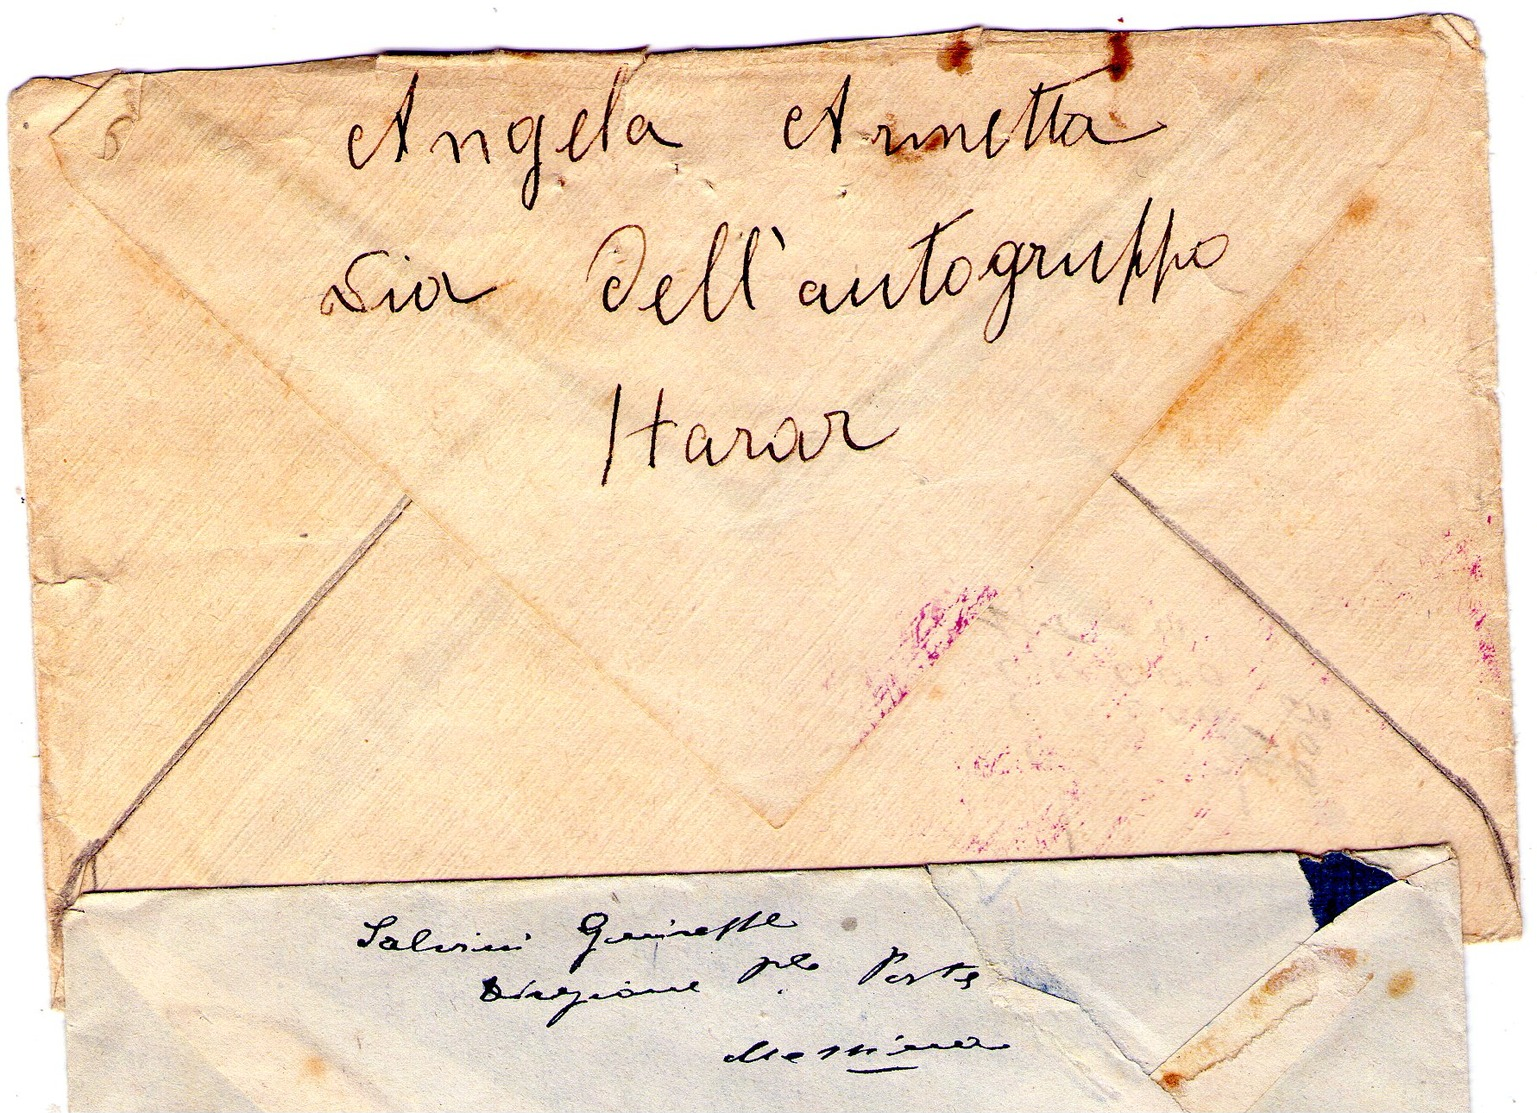 Angela Armetta
Via dell'autogruppo
Harar
Salvini Giuseppe
Direzione ple Poste
Messina